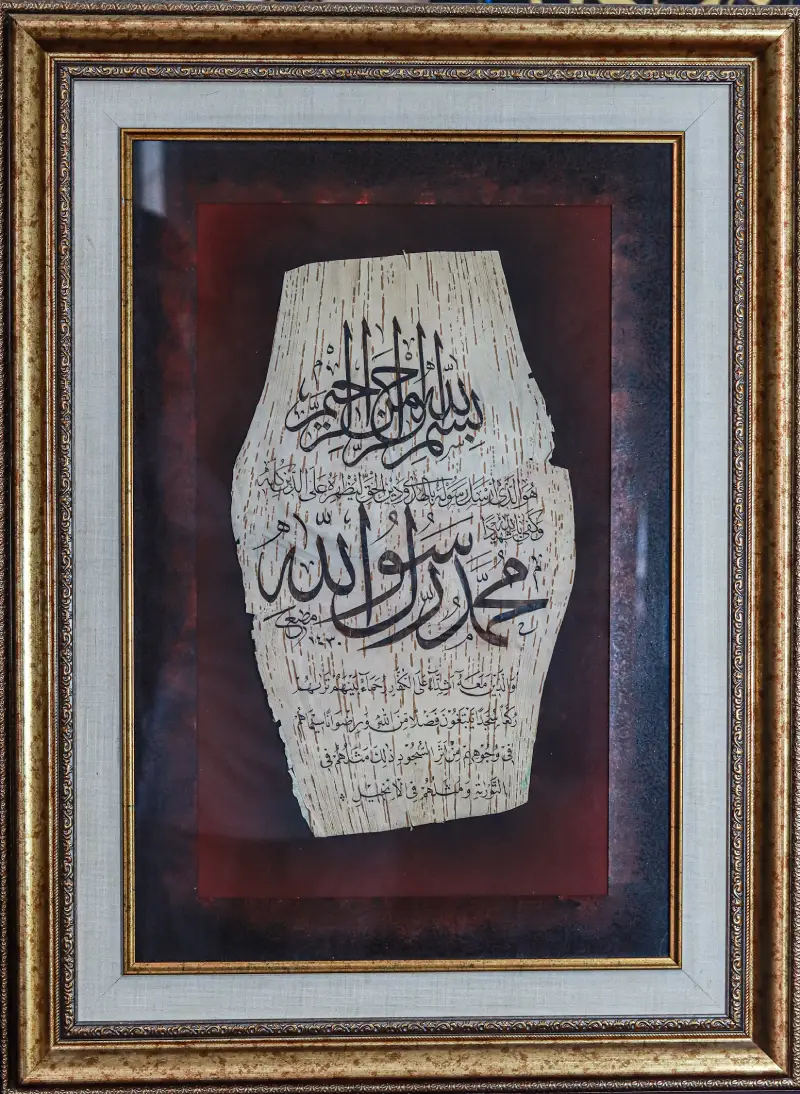 بسم الله الرحمن الرحيم
هو الذي أرسل رسوله بالهدى ودين الحق ليظهره على الدين كله
وكفى بالله شهيدا
محمد رسول الله
مصعب
١٤٣٠
والذين معه أشداء على الكفار رحماء بينهم تراهم
ركعا سجدا يبتغون فضلا من الله ورضوانا سيماهم
في وجوههم من أثر السجود ذلك مثلهم في
التورية ومثلهم في الانجيل